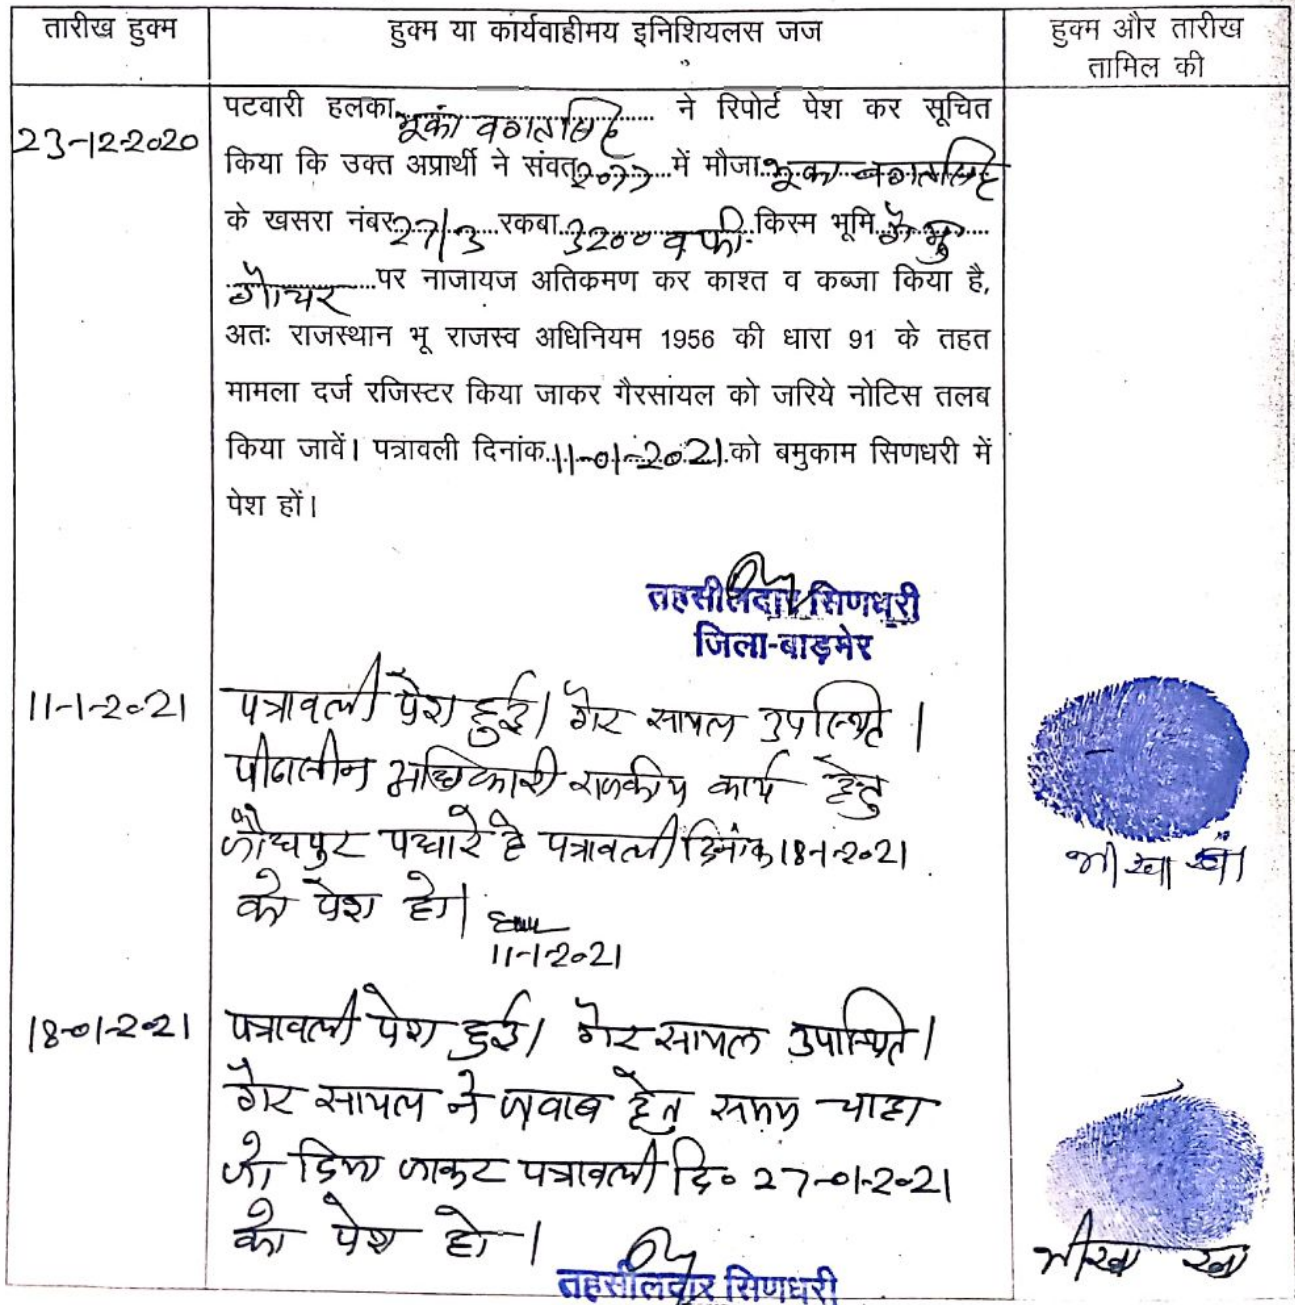 तारीख हुक्म
हुक्म या कार्यवाहीमय इनिशियलस जज
हुक्म और तारीख
तामिल की
23-12-2020
पटवारी हलका भूकां भगतसिंह ने रिपोर्ट पेश कर सूचित
किया कि उक्त अप्रार्थी ने संवत् 2077 में मौजा भूका भगतसिंह
के खसरा नंबर 27/3 रकबा 3200 व फी. किस्म भूमि गै मु
गोचर पर नाजायज अतिकमण कर काश्त व कब्जा किया है,
अतः राजस्थान भू राजस्व अधिनियम 1956 की धारा 91 के तहत
मामला दर्ज रजिस्टर किया जाकर गैरसायल को जरिये नोटिस तलब
किया जावें। पत्रावली दिनांक 11-01-2021 को बमुकाम सिणधरी में
पेश हों।
तहसीलदार सिणधरी
जिला-बाड़मेर
11-1-2021
पत्रावली पेश हुई। गैर सायल उपस्थित।
पीठासीन अधिकारी राजकीय कार्य हेतु
जोधपुर पधारे है पत्रावली दिनांक 18-1-2021
को पेश हो।
11-1-2021
भीखा खां
18-01-2021
पत्रावली पेश हुई। गैर सायल उपस्थित।
गैर सायल ने जवाब हेतु समय चाहा
जो दिया जाकर पत्रावली दि० 27-01-2021
को पेश हो।
तहसीलदार सिणधरी
भीखा खा